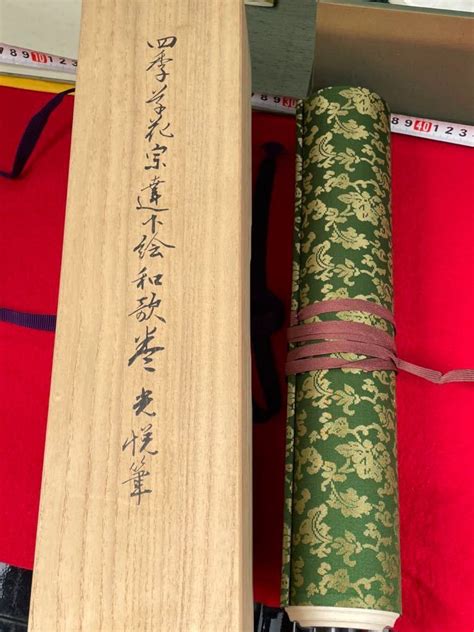 四季草花宗達下絵和歌巻 光悦筆
7 8 9 10 1 2 3
8 9 30
9 40 1 2 3